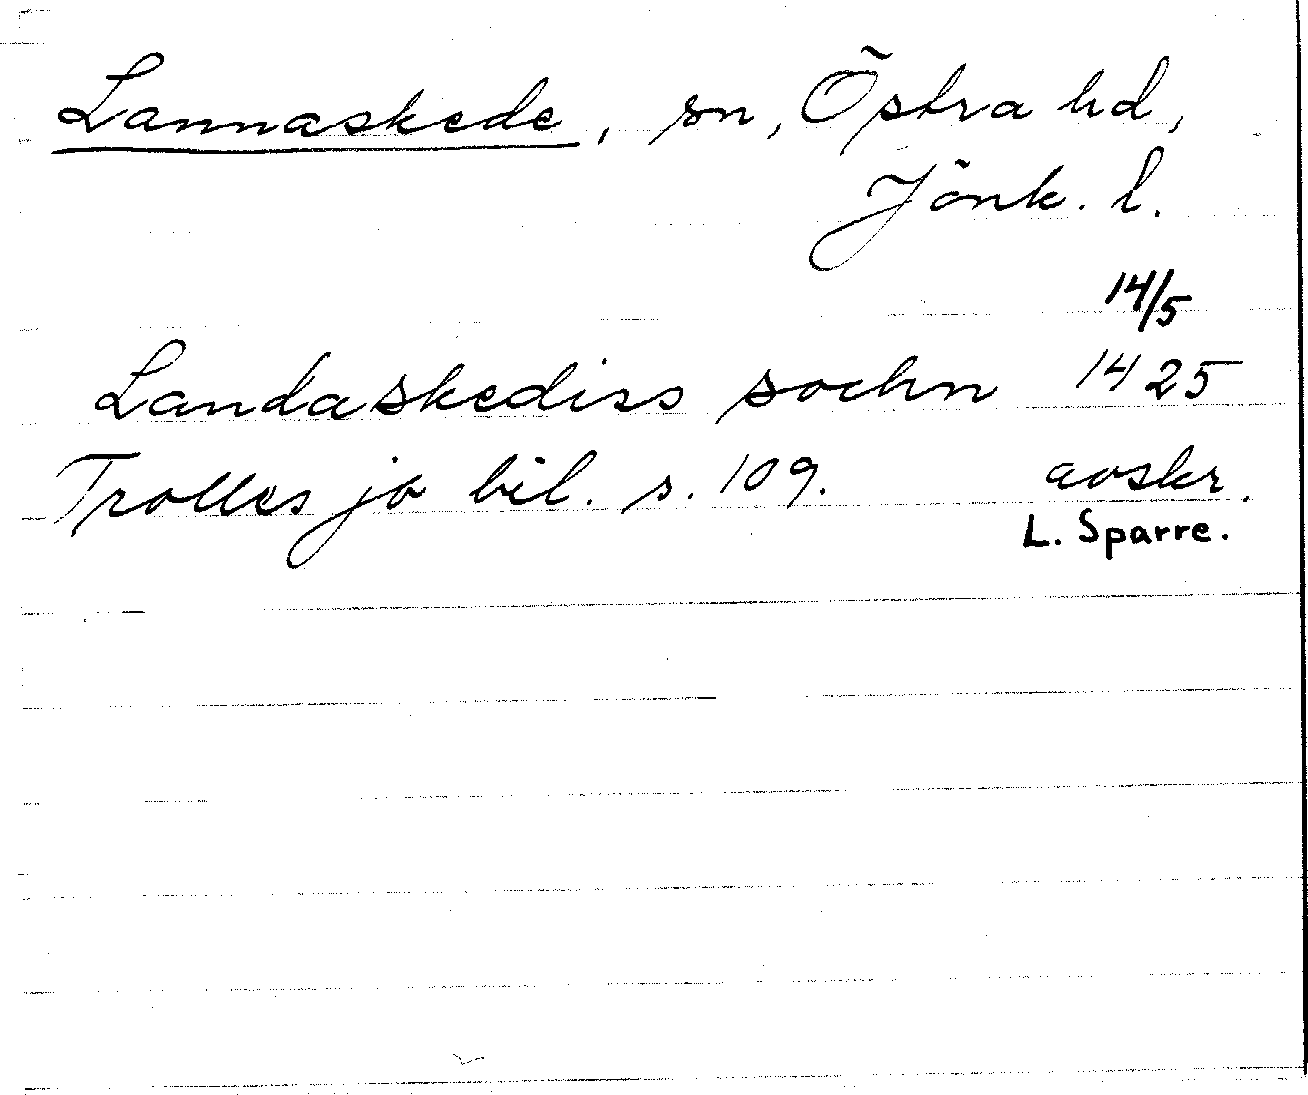 Lannaskede, sn, Östra hd,
Jönk. l.
14/5
Landaskediss sochn 1425
Trolles jo bil. s. 109. avskr.
L. Sparre.